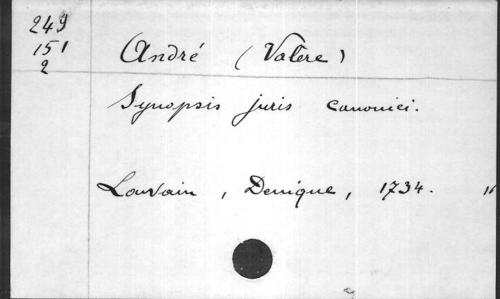 249
151
2
André (Valère)
Synopsis juris canonici.
Louvain, Denique, 1734.